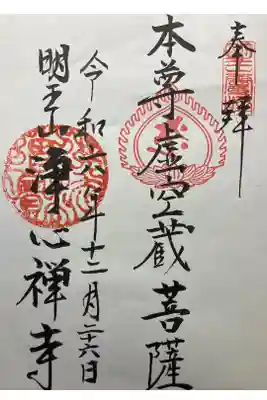 奉拝
本尊虚空蔵菩薩
令和六年十二月二六日
明王山津心禅寺